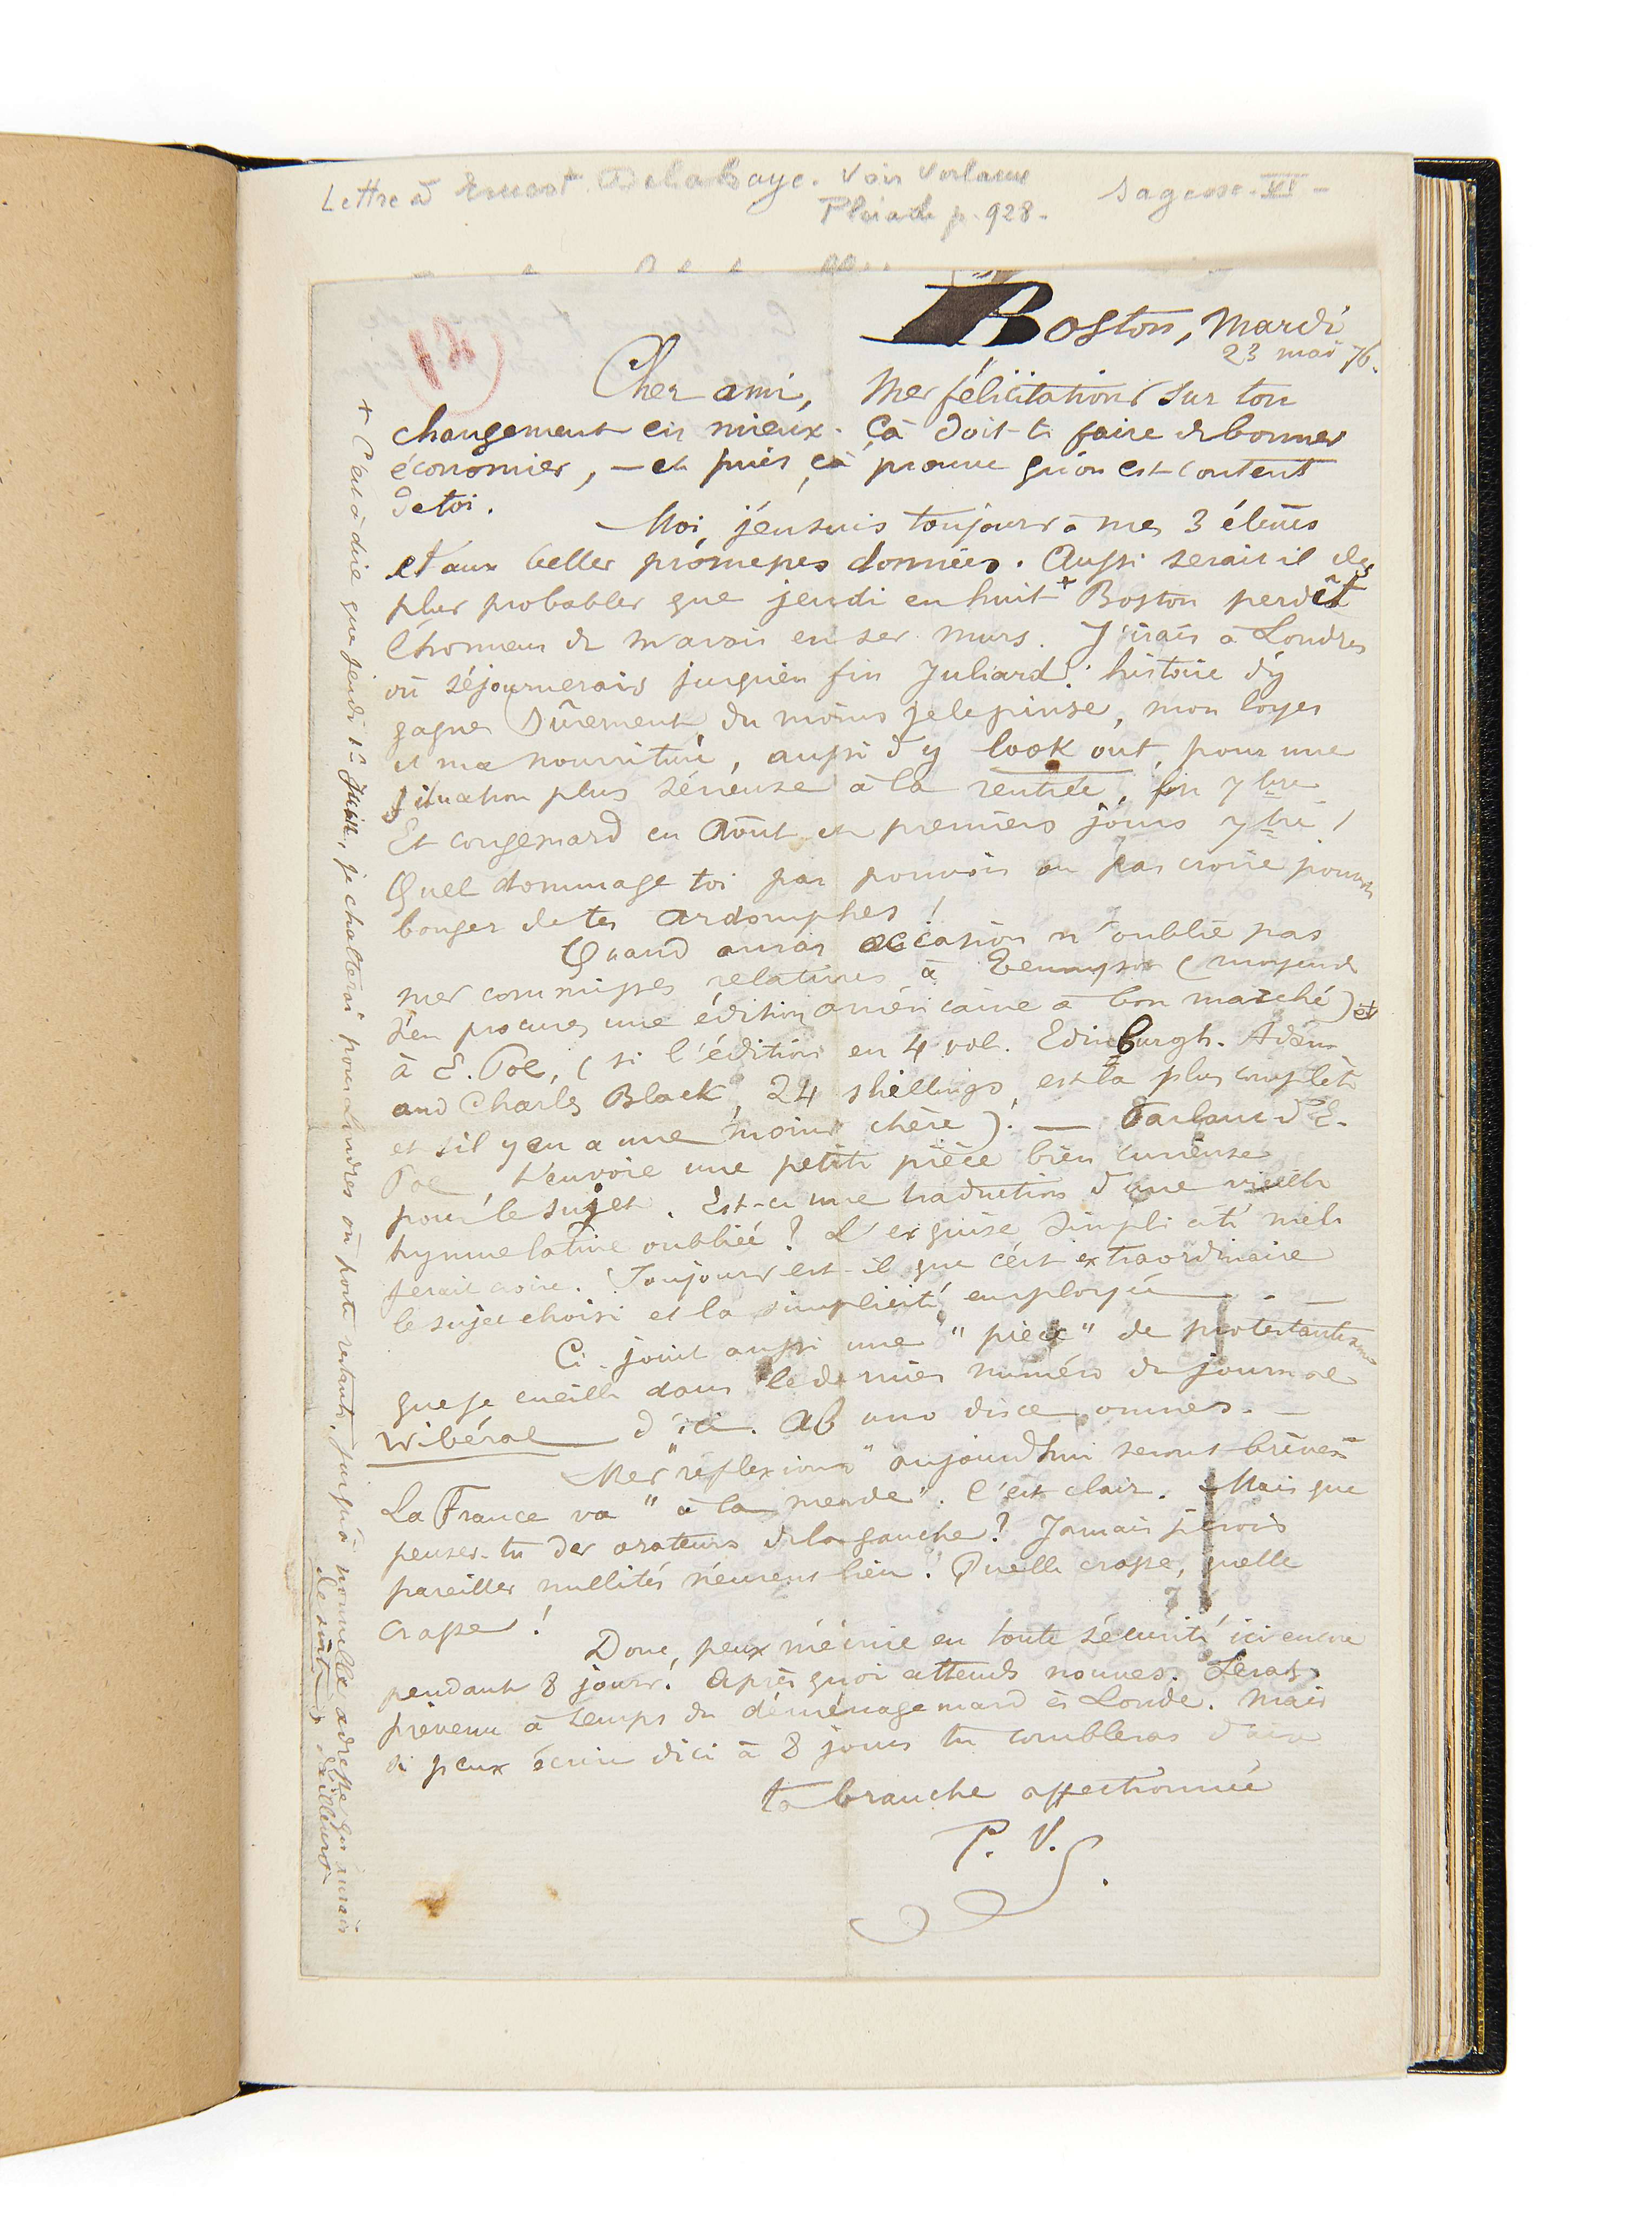 Lettre à Ernest Delahaye. Voir Verlaine
Pléiade p. 928.
Sagesse - VI -
Boston, Mardi
23 mai 76.
Cher ami, Mes félicitations sur ton
changement en mieux. Çà doit te faire de bonnes
économies, — et puis, çà prouve qu'on est content
de toi.
Moi, j'en suis toujours à mes 3 élèves
et aux belles promesses données. Aussi serait il des
plus probables que jeudi en huit + Boston perdît
l'honneur de m'avoir en ses murs. J'irais à Londres
où séjournerais jusqu'en fin Juliard! histoire d'y
gagner sûrement, du moins je le pense, mon loyer
et ma nourriture, aussi d'y look out, pour une
situation plus sérieuse à la rentrée, fin 7bre
Et congemard en Août et premiers jours 7bre!
Quel dommage toi pas pouvoir ou pas croire pouvoir
bouger de tes Ardomphes!
Quand auras occasion n'oublie pas
mes commisses relatives à Tennyson (moyen de
s'en procurer une édition américaine à bon marché) et
à E. Poe, (si l'édition en 4 vol. Edinburgh. Adam
and Charles Black, 24 shellings, est la plus complète
et s'il y en a une moins chère). — Parlant d'E.
Poe t'envoie une petite pièce bien curieuse
pour le sujet. Est-ce une traduction d'une vieille
hymne latine oubliée? L'exquise simplicité me le
ferait croire. Toujours est-il que c'est extraordinaire
le sujet choisi et la simplicité employée — . —
Ci-joint aussi une "pièce" de protestantisme
que je cueille dans le dernier numéro du journal
wibéral d'ici. Ab uno disce omnes. —
Mes "réflexions" aujourd'hui seront brèves
La France va "à la merde". C'est clair. Mais que
penses-tu des orateurs de la gauche? Jamais je crois
pareilles nullités n'eurent lieu! Quelle crasse, quelle
crasse!
Donc, peux m'écrire en toute sécurité ici encore
pendant 8 jours! Après quoi attends nouvés. Seras
prévenu à temps du déménagemard ès Londe. Mais
si peux écrire d'ici à 8 jours tu combleras d'aise
ta branche affectionnée
P. V.
+ C'est à dire que jeudi 1er Juin, je chalterai pour Londres où poste restante, jusqu'à nouvelle adresse que j'aurais
de suite, d'ailleurs